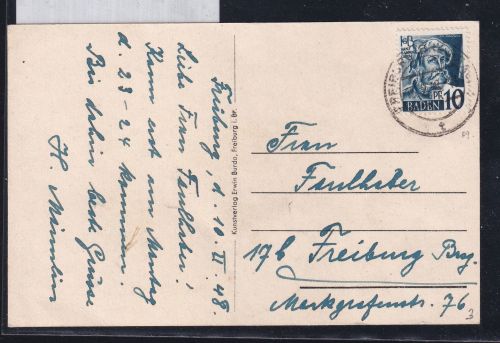 Freiburg, d. 10. II. 48.
Liebe Frau Faulhaber!
Kann erst am Montag
d. 23-24 kommen.
Bis dahin beste Grüsse
H.
Kunstverlag Erwin Burda, Freiburg i. Br.
PF. 10
BADEN
FREIBURG
Frau
Faulhaber
17b Freiburg Brg.
Markgrafenstr. 76
3